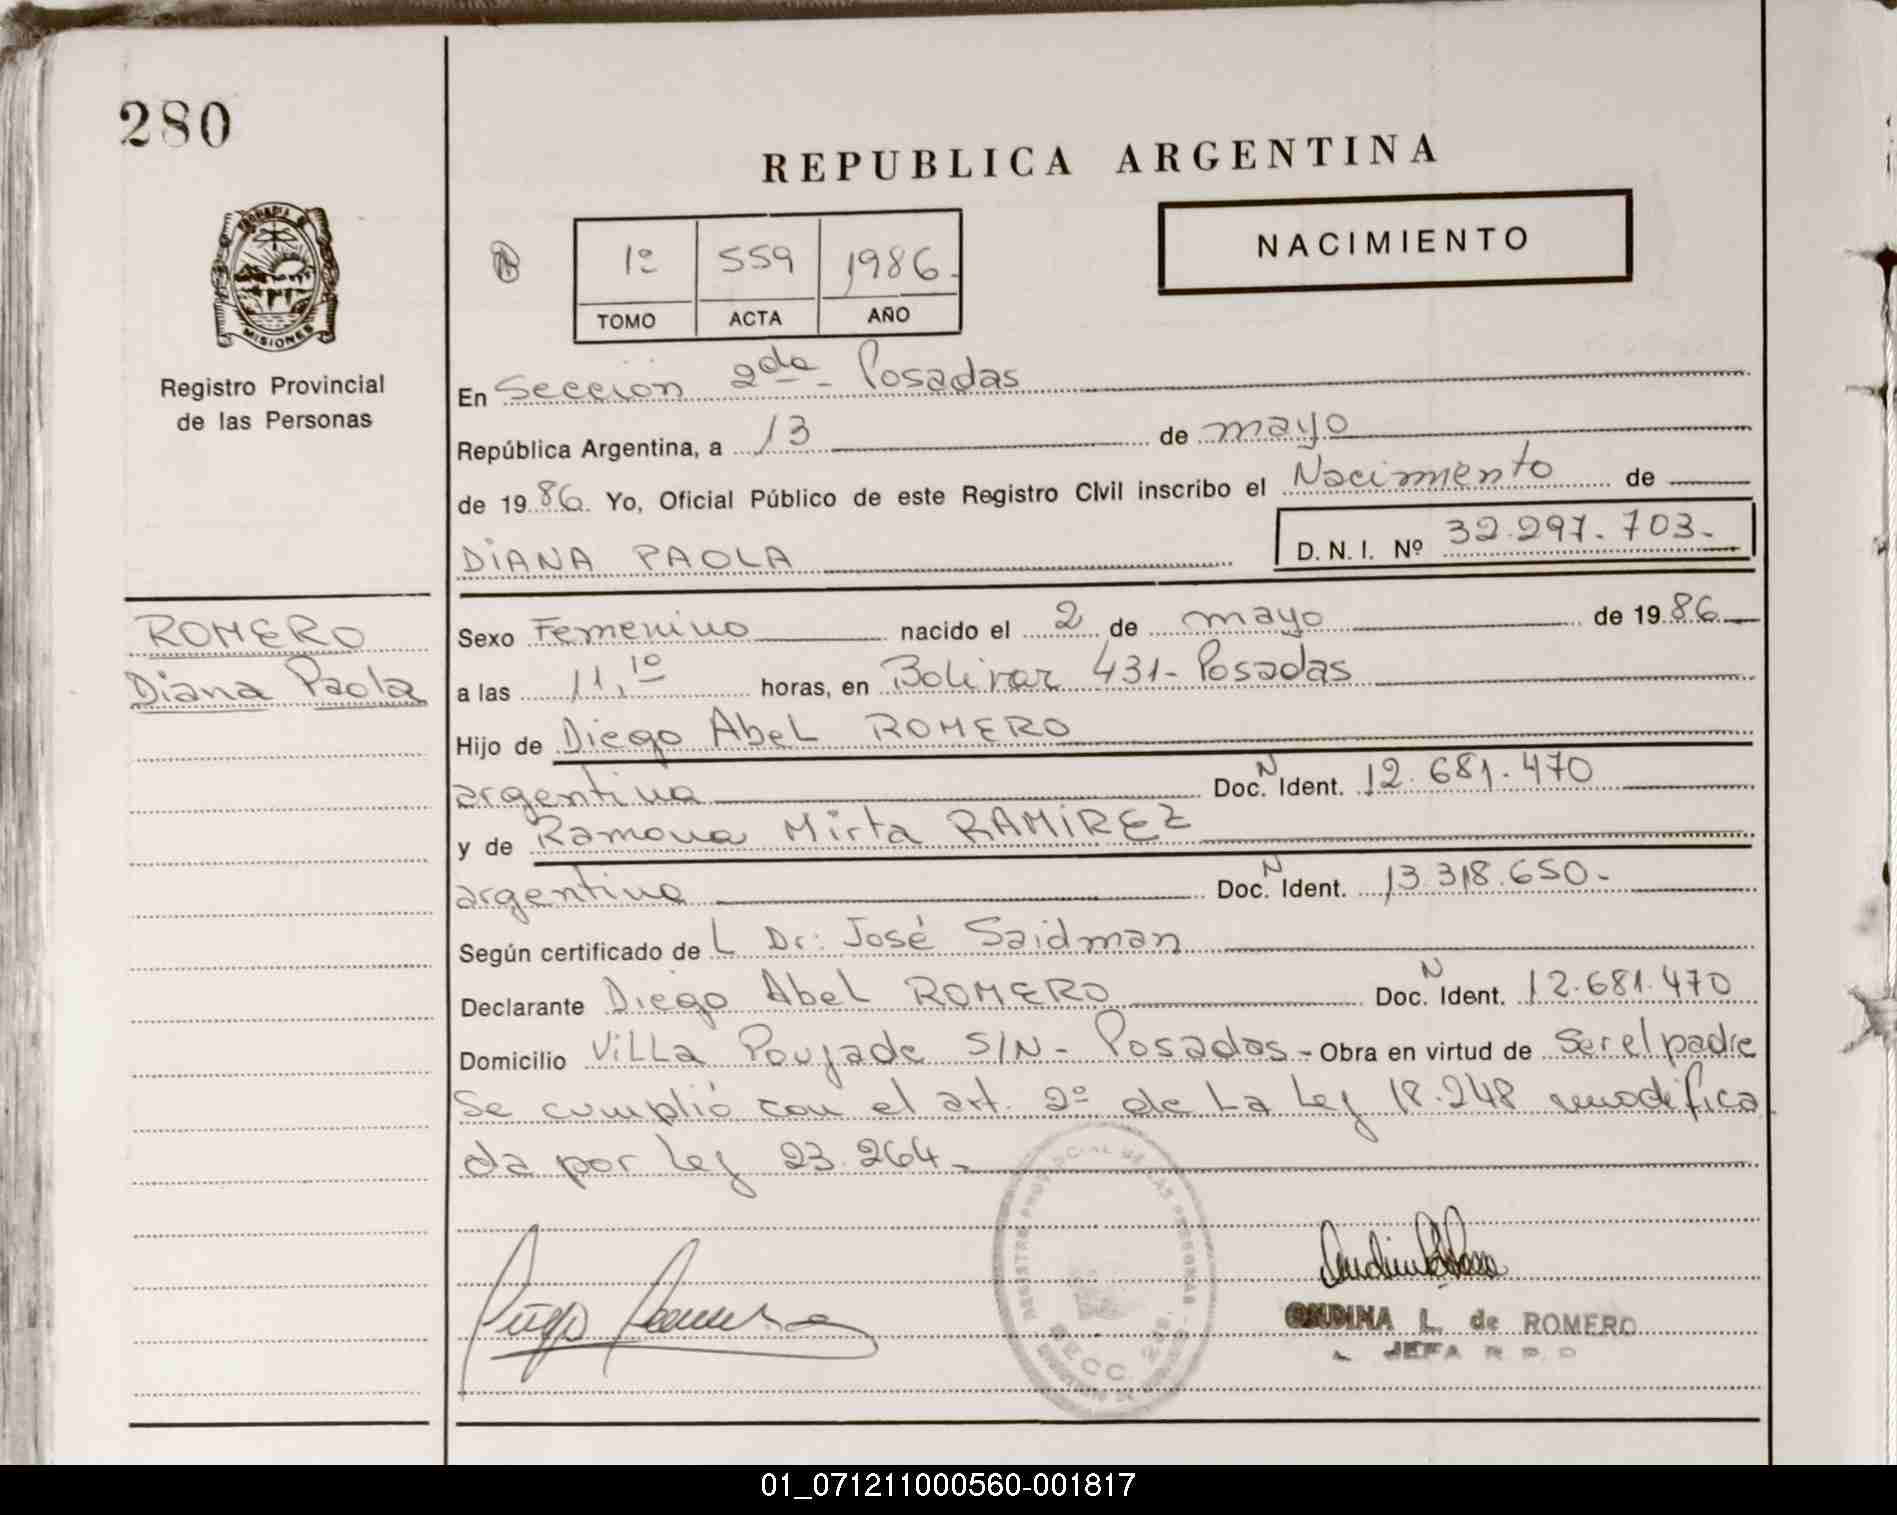 280
REPUBLICA ARGENTINA
NACIMIENTO
1º 559 1986.
TOMO ACTA AÑO
PROVINCIA DE
MISIONES
Registro Provincial
de las Personas
En Sección 2da - Posadas
República Argentina, a 13 de mayo
de 1986. Yo, Oficial Público de este Registro Civil inscribo el Nacimiento de
DIANA PAOLA D. N. I. Nº 32.297.703.-
ROMERO
Diana Paola
Sexo Femenino nacido el 2 de mayo de 1986
a las 11,10 horas, en Bolivar 431 - Posadas
Hijo de Diego Abel ROMERO
argentina Doc. N Ident. 12.681.470
y de Ramona Mirta RAMIREZ
argentina Doc. N Ident. 13.318.650.-
Según certificado de L Dr: José Saidman
Declarante Diego Abel ROMERO Doc. N Ident. 12.681.470
Domicilio Villa Poujade S/N - Posadas - Obra en virtud de ser el padre
Se cumplió con el art. 2º de la Ley 18.248 modifica
da por Ley 23.264.-
REGISTRO PROVINCIAL DE LAS PERSONAS
SECC. 2da.
ONDINA L. de ROMERO
JEFA R. P.
01_071211000560-001817